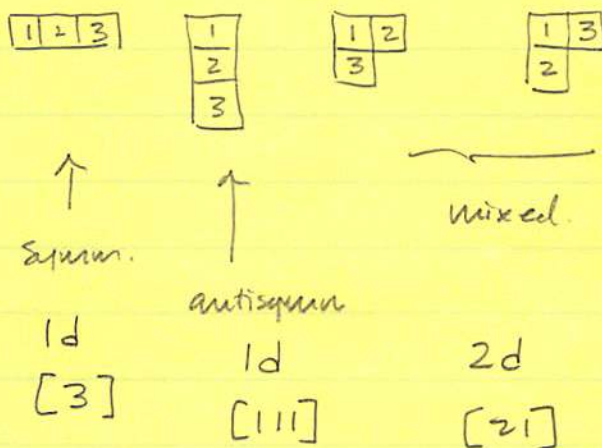 1 2 3
1
2
3
1 2
3
1 3
2
symm.
antisymm
mixed.
1d
1d
2d
[3]
[111]
[21]